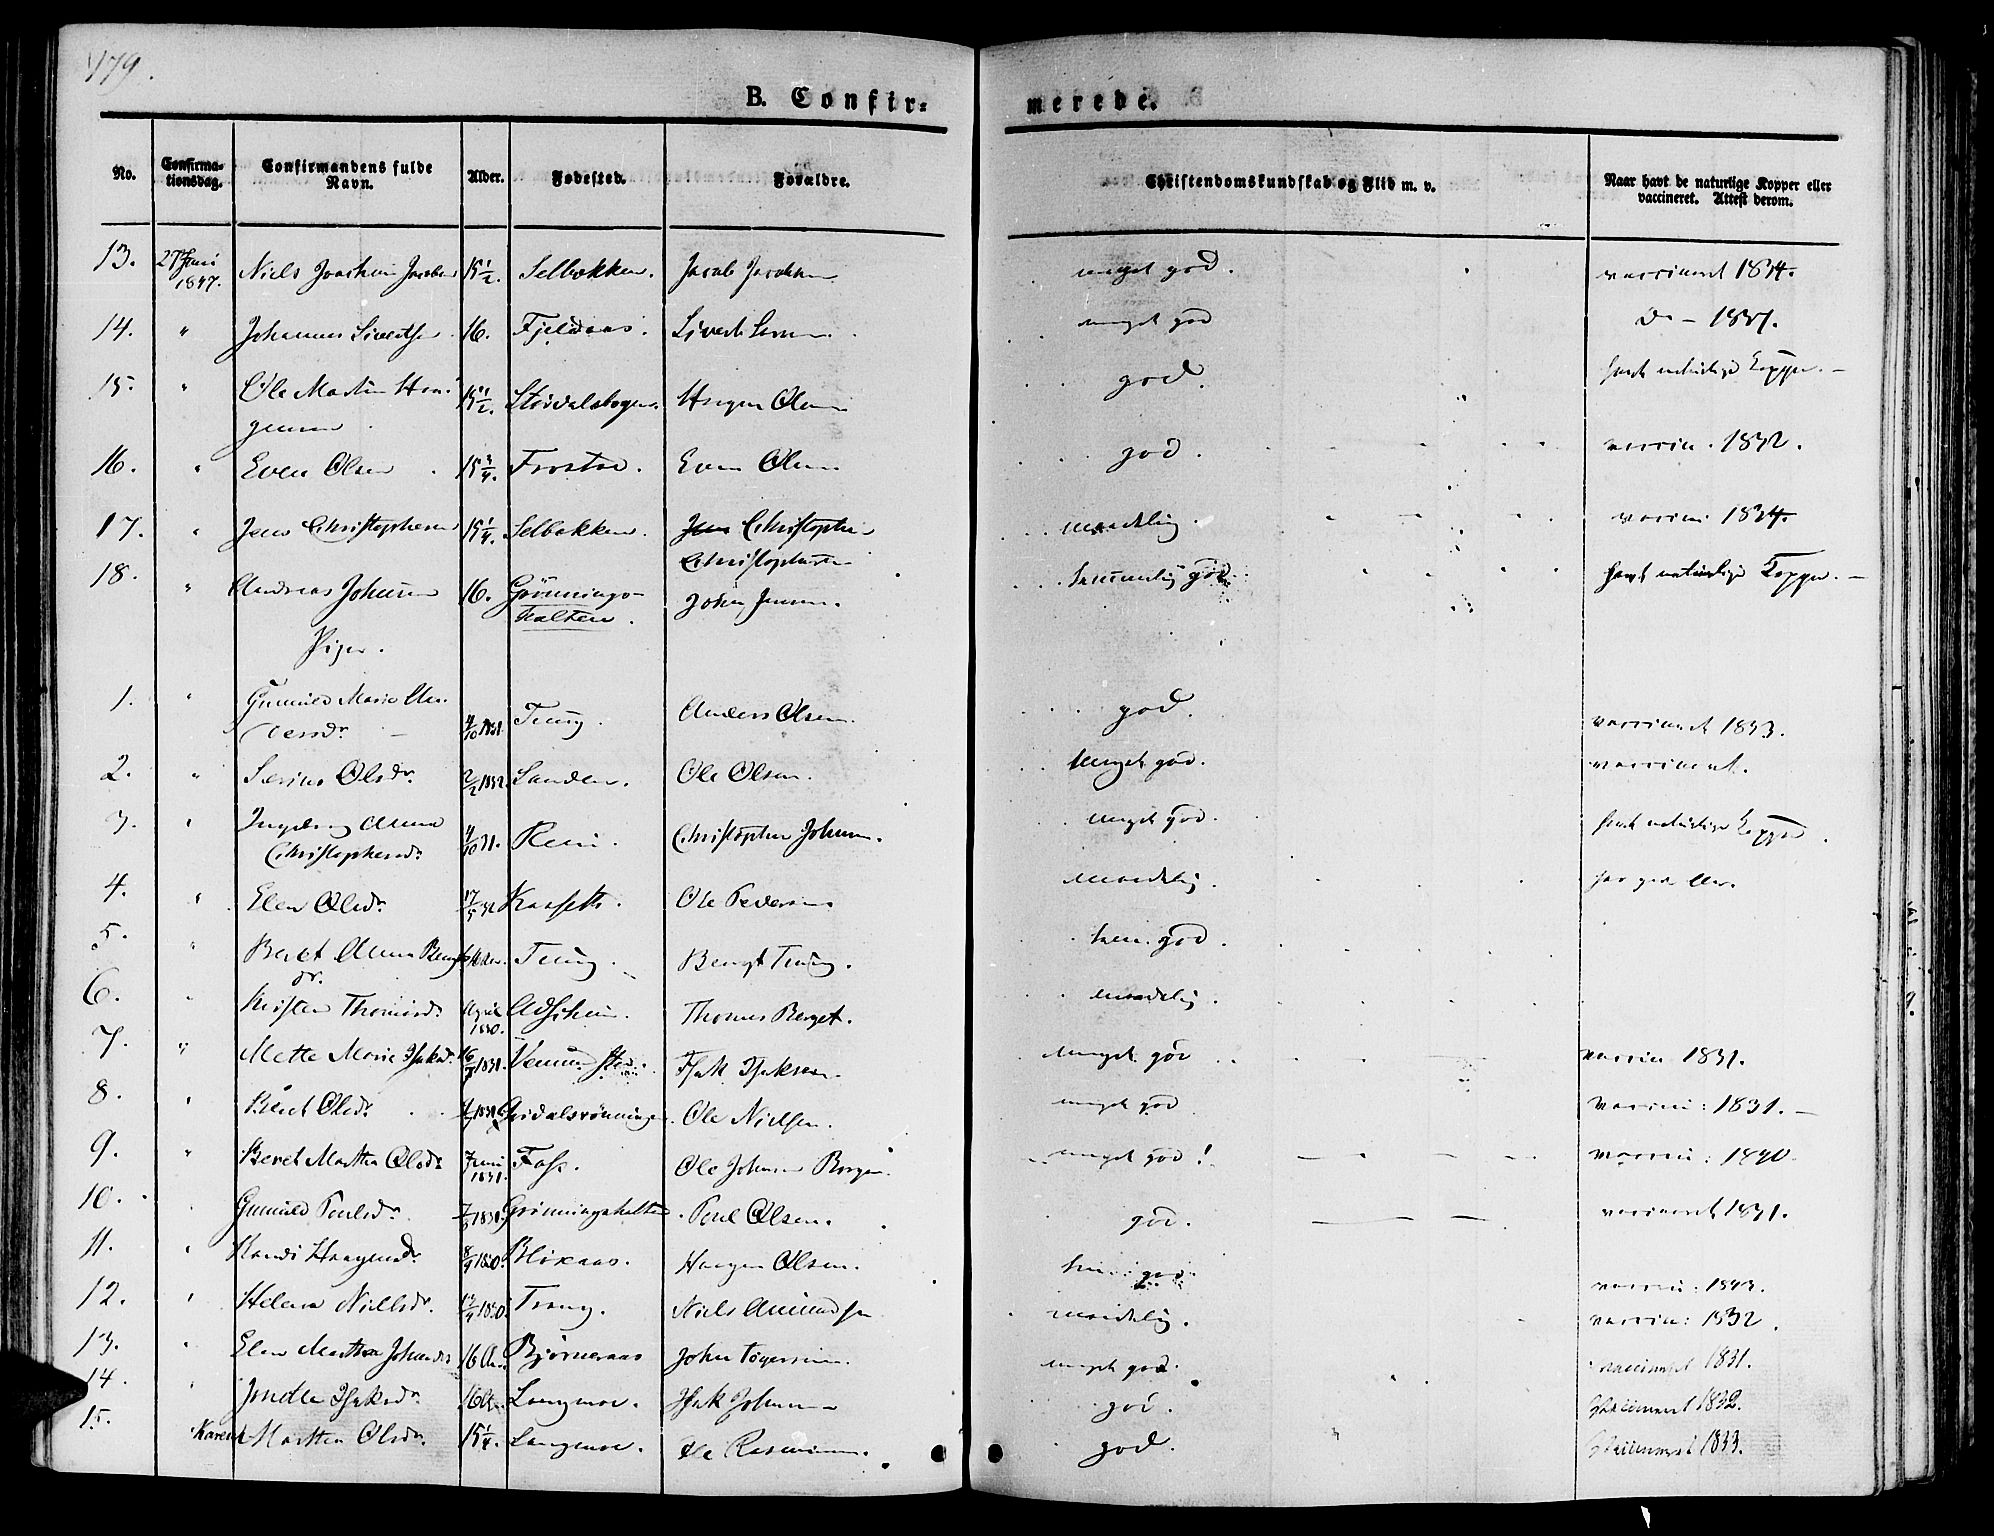 179.
B. Confir=
merede.
No.
Confirma-
tionsdag.
Confirmandens fulde
Navn.
Alder.
Fødested.
Forældre.
Christendomskundskab og Flid m. v.
Naar havt de naturlige Kopper eller
vaccineret. Attest derom.
13. 27 Juni 1847. Niels Joachim Jacobsen 15 1/2. Selbekken. Jacob Jacobsen meget god. vaccineret 1834.
14. " Johannes Sivertsen 16. Fjeldaas. Sivert meget god Do - 1837.
15. " Ole Martin Haa-
gensen 15 1/2. Størdalsbogen. Haagen Olsen god. havt naturlige Kopper. -
16. " Even Olsen 15 3/4. Frostad. Even Olsen god. vaccin. 1832.
17. " Jens Christophersen 15 1/4. Selbekken. Jens Christopher
Christophersen maadelig. vaccin. 1834.
18. " Andreas Johnsen 16. Grønnings-
halten. John Jensen. temmelig god. havt naturlige Kopper. -
Piger.
1. " Gunnild Marie An-
dersdr. 4/10 1831. Trang. Anders Olsen. god. vaccineret 1833.
2. " Serine Olsdr. 2/2 1832. Sanden. Ole Olsen. Meget god. vaccineret.
3. " Ingeborg Anna
Christophersdr. 4/10 31. Rein. Christopher Johnsen. meget god. havt naturlige Kopper.
4. " Elen Olsdr. 17/5 32 Ole Pedersen maadelig.
5. " Beret Anna Bengts
dr. Trang. Bengt Trang. tem. god.
6. " Kirsten Thomasdr. April 1830. Thomas Berget. maadelig.
7. " Mette Marie Isaksdr. 1831. Isak Isaksen. meget god vaccin 1831.
8. " Beret Olsdr. Ole Nielsen. meget god vaccin: 1831. -
9. " Beret Martha Olsdr. Juni 1831. Foss. Ole Johnsen Borgen meget god! vaccin: 1840.
10. Gunnild Poulsdr. 1831. Grønningshalten. Poul Olsen. god. vaccineret 1831.
11. " Randi Haagensdr. 8/9 1830. Blixaas. Haagen Olsen. tem. god vaccin: 1843.
12. " Helena Nielsdr. 1830. Trang. Niels Amundsen maadelig. vaccin: 1832.
13. " Elen Martha Johnsdr 16 Aar Bjørneraas John Tøgersen. meget god. vaccineret 1831.
14. " Isaksdr. 16 Langmoe. Isak Johnsen god. vaccineret 1832.
15. Karen Martha Olsdr. 15 1/4. Langmoe. Ole Rasmussen. god. vaccineret 1833.